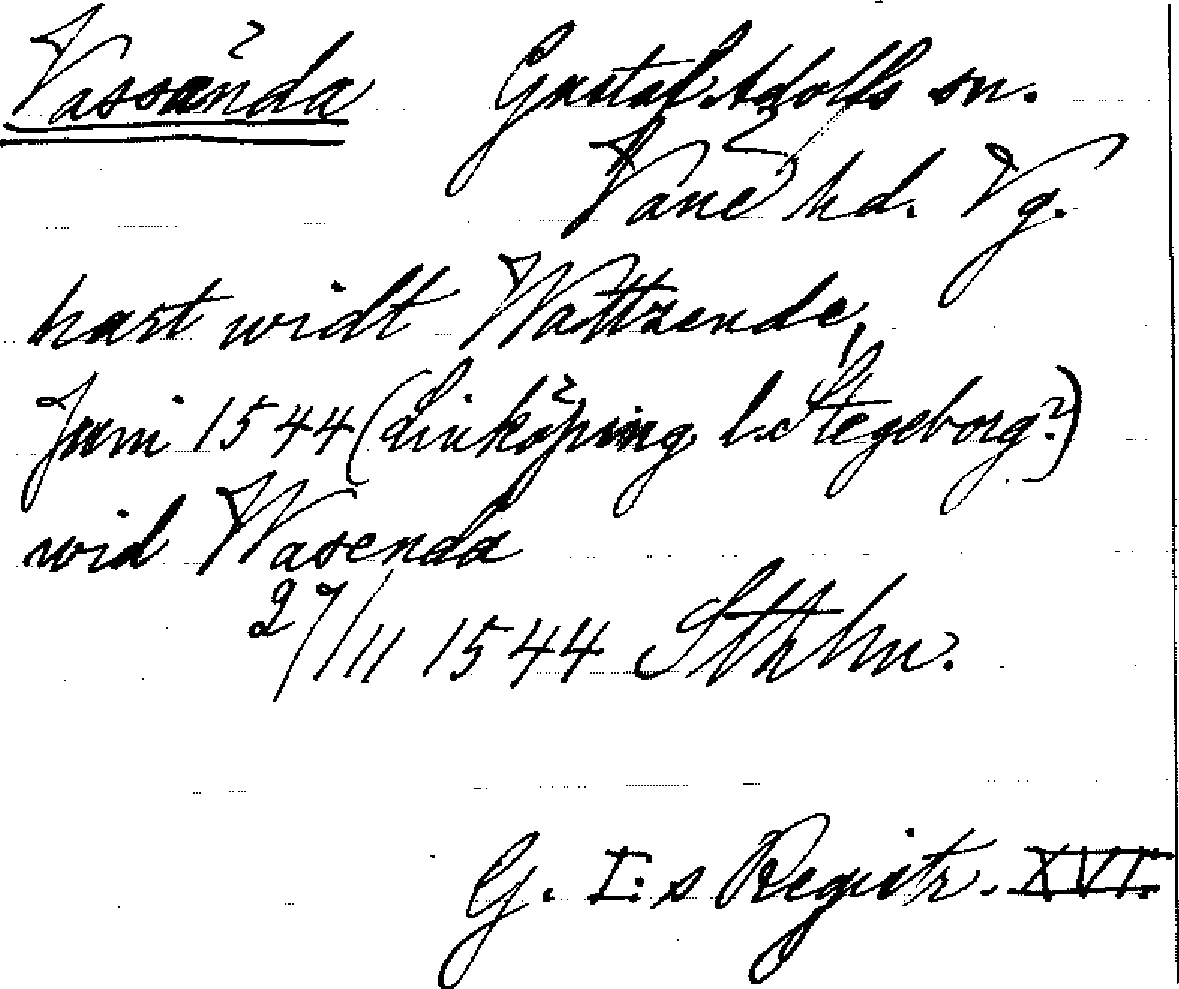 Vassända Gustaf Adolfs sn.
Väne hd. Vg.
hart widt Wattzende,
Juni 1544 (Linköping l. Stegeborg?)
wid Wasenda
27/11 1544 Sthlm.
G. I:s Registr. XVI.